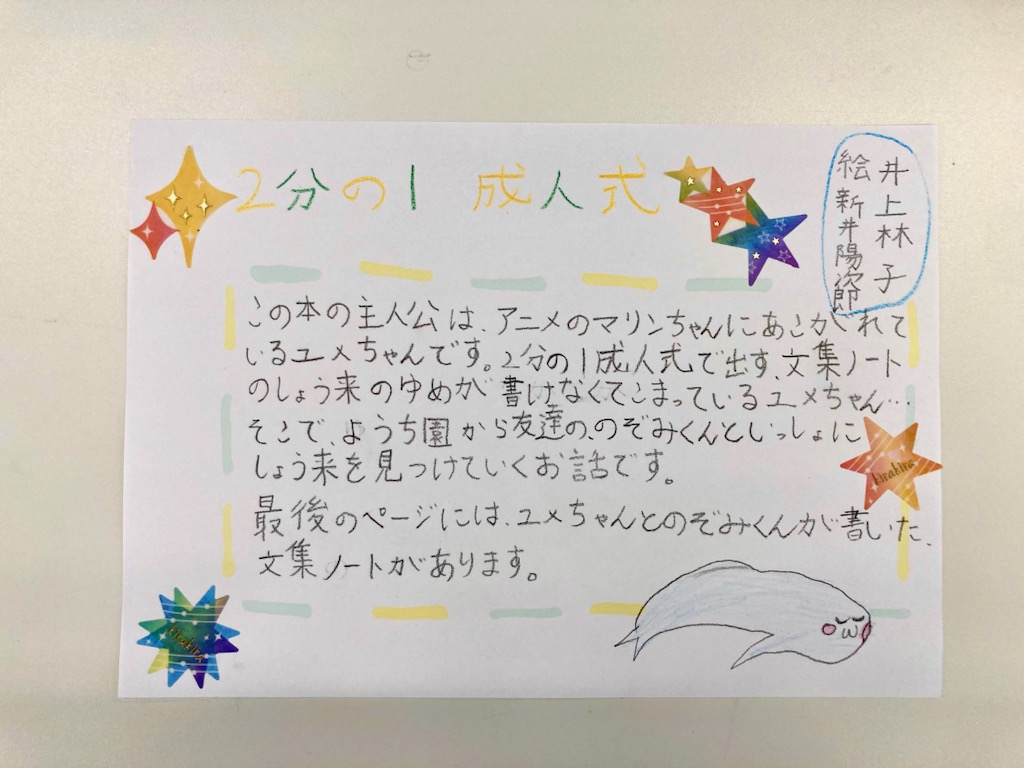 2分の1 成人式
井上林子
絵 新井陽次郎
この本の主人公は、アニメのマリンちゃんにあこがれて
いるユメちゃんです。2分の1成人式で出す、文集ノート
のしょう来のゆめが書けなくてこまっているユメちゃん…
そこで、ようち園から友達の、のぞみくんといっしょに
しょう来を見つけていくお話です。
最後のページには、ユメちゃんとのぞみくんが書いた、
文集ノートがあります。
kirakira
kirakira